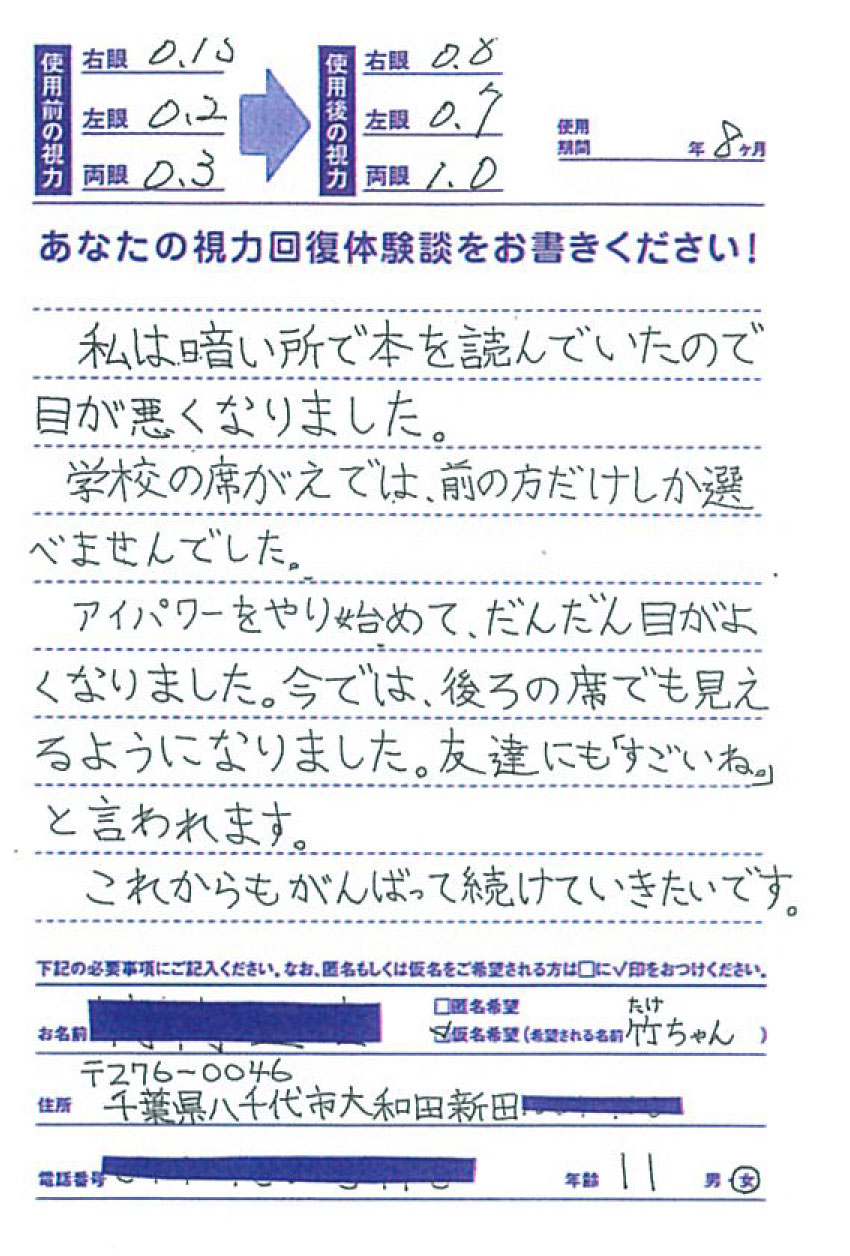 使用前の視力
右眼 0.15
左眼 0.2
両眼 0.3
使用後の視力
右眼 0.8
左眼 0.7
両眼 1.0
使用期間 年 8ヶ月
あなたの視力回復体験談をお書きください!
私は暗い所で本を読んでいたので
目が悪くなりました。
学校の席がえでは、前の方だけしか選
べませんでした。
アイパワーをやり始めて、だんだん目がよ
くなりました。今では、後ろの席でも見え
るようになりました。友達にも「すごいね。」
と言われます。
これからもがんばって続けていきたいです。
下記の必要事項にご記入ください。なお、匿名もしくは仮名をご希望される方は□に√印をおつけください。
お名前
□匿名希望
☑仮名希望(希望される名前 竹ちゃん )
たけ
〒276-0046
住所 千葉県八千代市大和田新田
電話番号
年齢 11 男・女